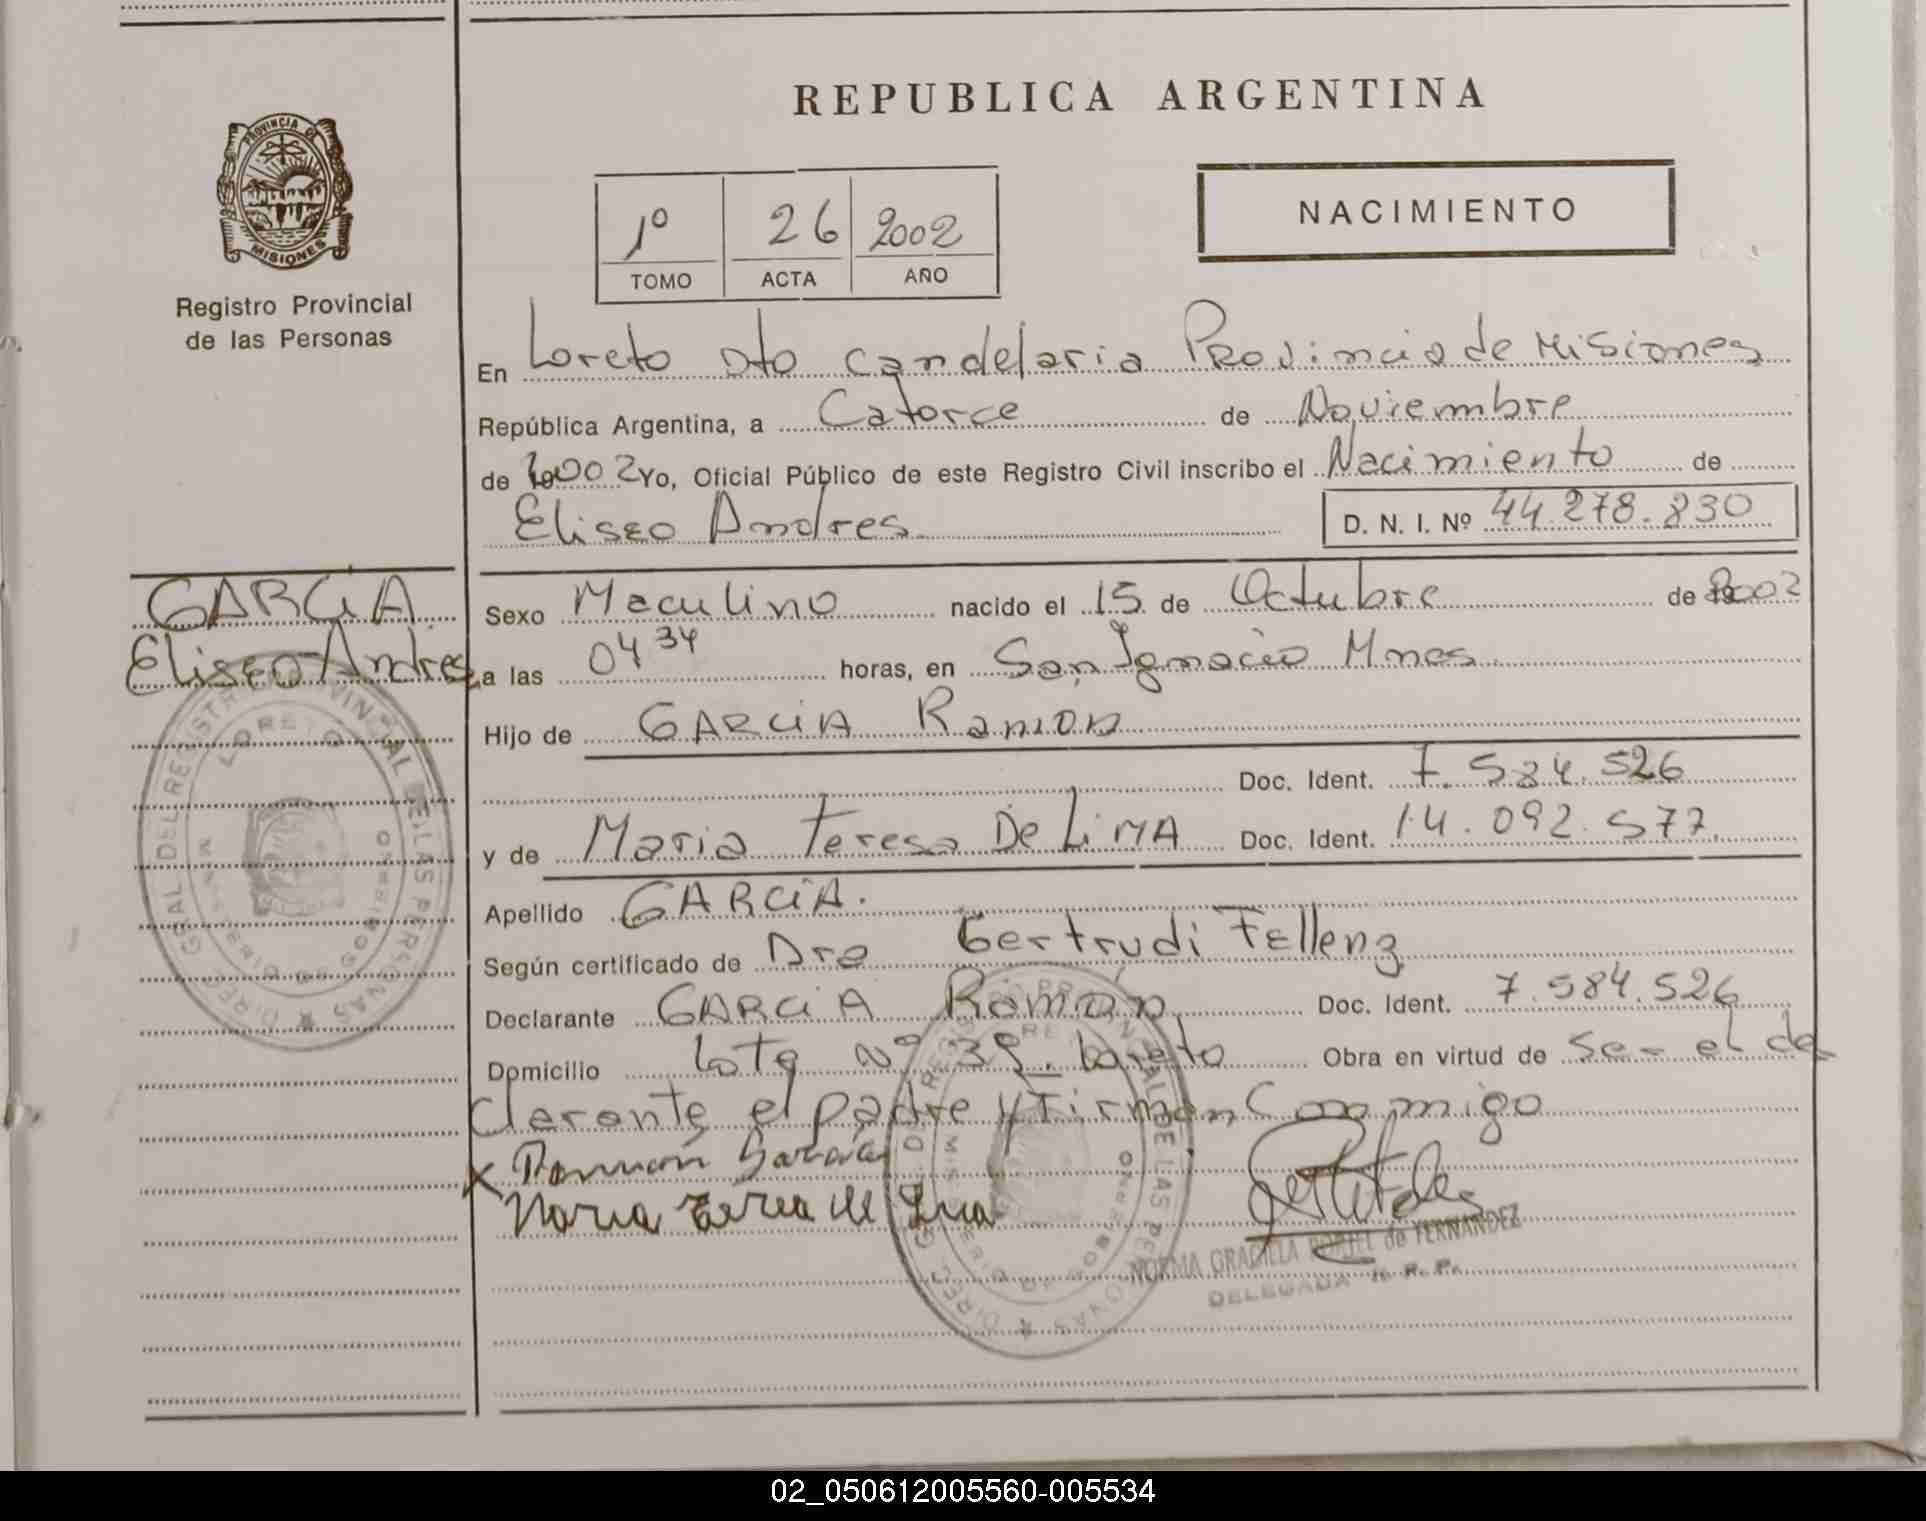 REPUBLICA ARGENTINA
PROVINCIA DE
MISIONES
Registro Provincial
de las Personas
1º 26 2002
TOMO ACTA AÑO
NACIMIENTO
En Loreto Dto Candelaria Provincia de Misiones
República Argentina, a Catorce de Noviembre
de 2002 Yo, Oficial Público de este Registro Civil inscribo el Nacimiento de
Eliseo Andres D. N. I. Nº 44.278.830
GARCIA
Eliseo Andres
Sexo Maculino nacido el 15 de Octubre de 2002
a las 04 34 horas, en San Ignacio Mnes
Hijo de GARCIA Ramon
Doc. Ident. 7.584.526
y de Maria Teresa De LiMA Doc. Ident. 14.092.577.
Apellido GARCIA.
Según certificado de Dra Gertrudi Fellenz
Declarante GARCIA Ramón Doc. Ident. 7.584.526
Domicilio Lote Nº 39. Loreto Obra en virtud de Ser el de
clarante el padre y Firman Conmigo
x Ramón García
Maria Teresa de Lima
NORMA GRACIELA de FERNANDEZ
DELEGADA R. P.
LORETO
02_050612005560-005534